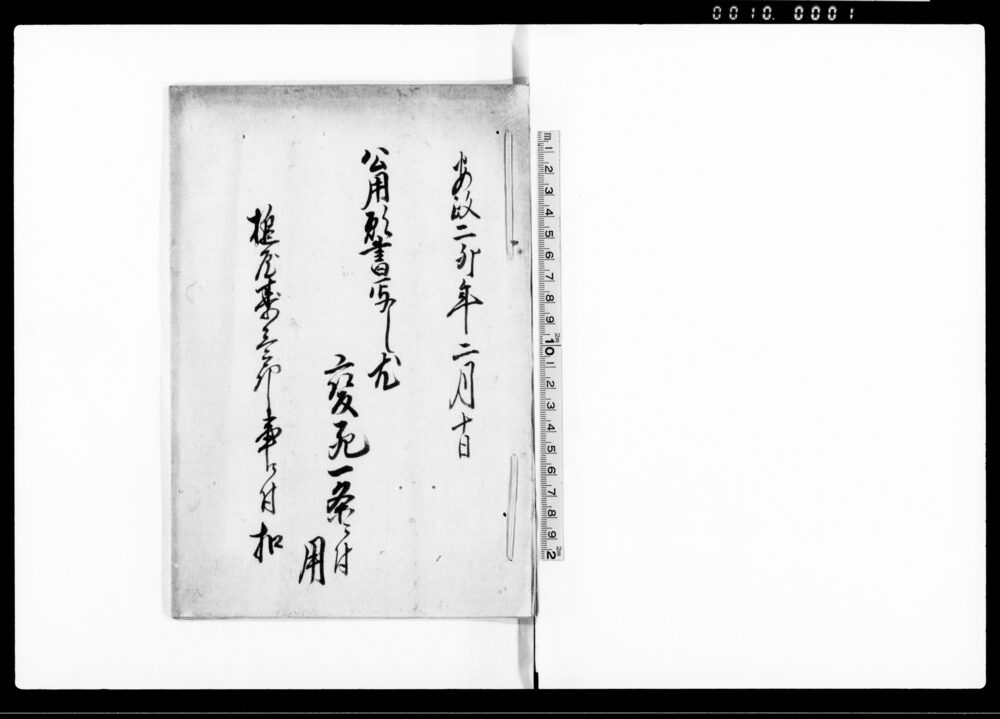 0010. 0001
安政二卯年二月十日
公用願書写し
変死一条ニ付
用
屋寿三郎事ニ付扣
m 1 2 3 4 5 6 7 8 9 10 1 2 3 4 5 6 7 8 9 2